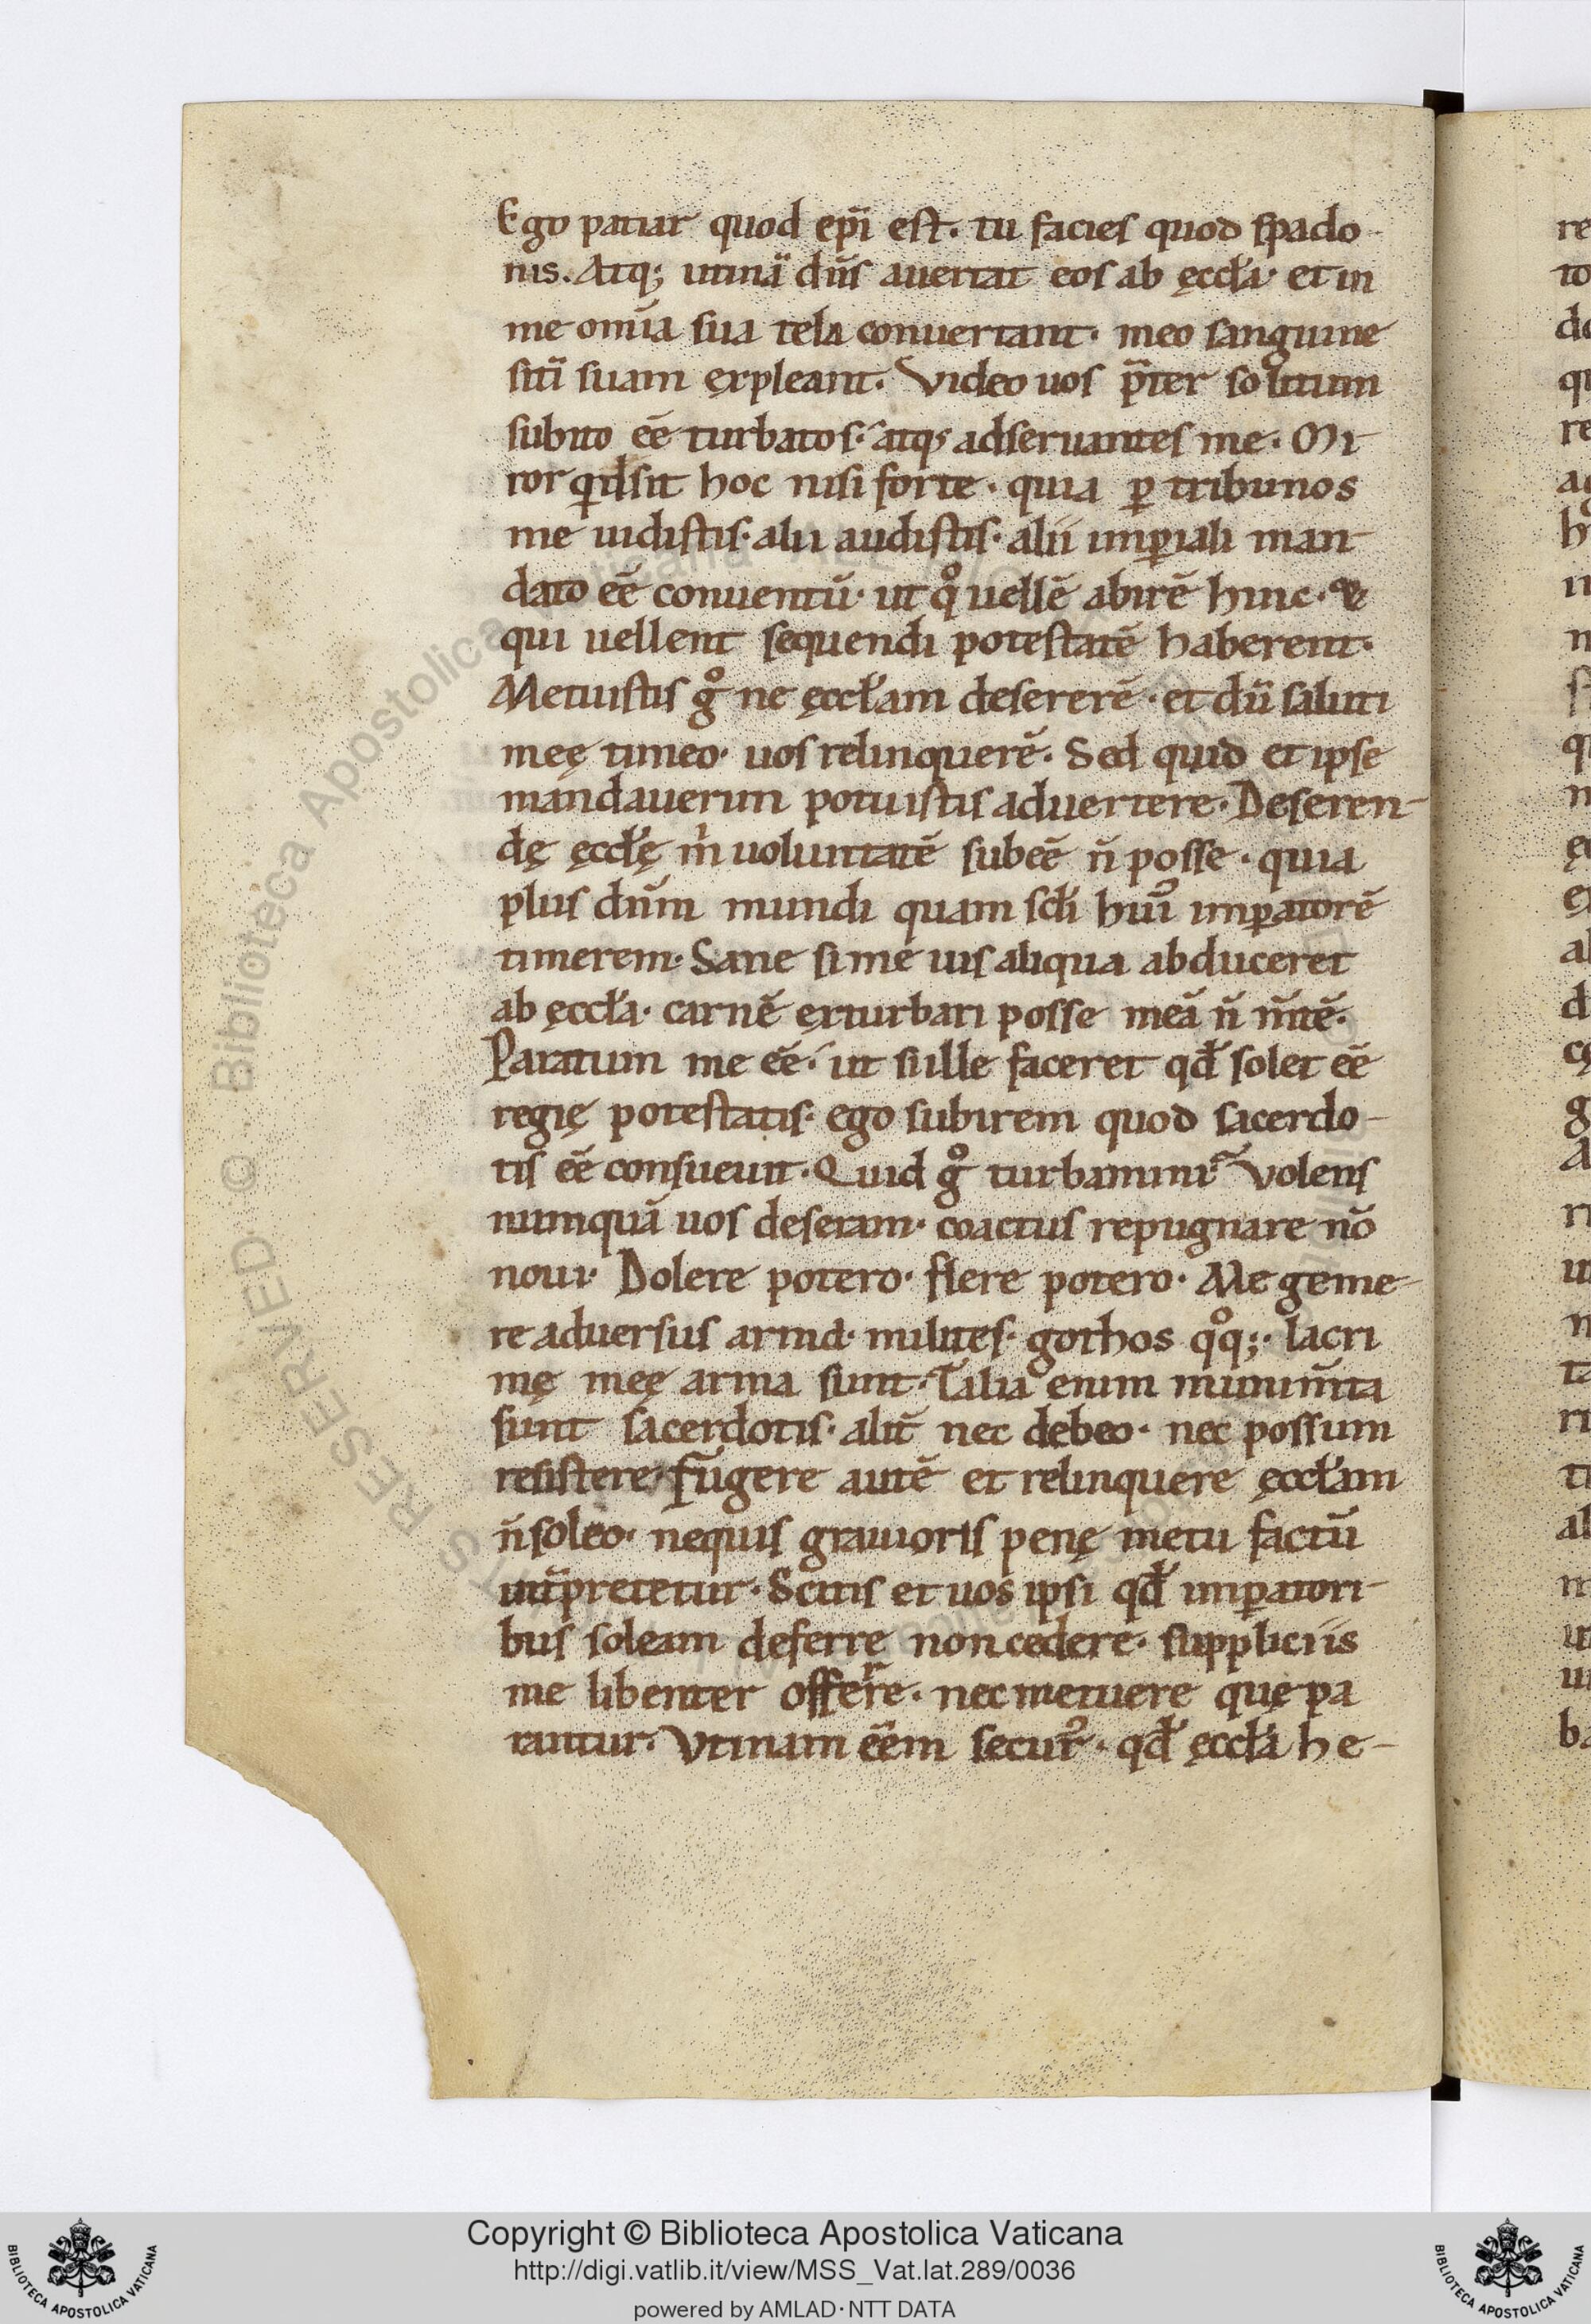 Ego patiar quod ep̄i est. tu facies quod spado-
nis. Atq; utinā dn̄s auertat eos ab ęccła· et in
me om̄ia sua tela conuertant· meo sanguine
sitī suam expleant. Video uos p̄ter solitum
subito eē turbatos· atq; adseruantes me. Mi-
ror qͥdsit hoc nisi forte· quia ꝑ tribunos
me uidistis· alii audistis· alii imꝑiali man-
dato eē conuentū· ut qͦ uellē abirē hinc· &
qui uellent sequendi potestatē haberent·
Metuistis gͦ ne ęccłam desererē· et dū saluti
meę timeo· uos relinquerē. Sed quid et ipse
mandauerim potuistis aduertere· Deseren-
dę ęccłę m̍ uoluntatē subeē n̄ posse· quia
plus dn̄m mundi quam scłi hui᾿ imꝑatorē
timerem· Sane si me uis aliqua abduceret
ab ęccła· carnē exturbari posse meā n̄ m̄tē·
Paratum me eē· ut si ille faceret qđ solet eē
regię potestatis· ego subirem quod sacerdo-
tis eē consueuit. Quid gͦ turbamini? Volens
numquā uos deseram· coactus repugnare nō
noui· Dolere potero· flere potero· Me geme-
re aduersus arma· milites· gothos qͦq;· lacri
mę meę arma sunt· Talia enim munim̄ta
sunt sacerdotis· alit̄ nec debeo· nec possum
resistere· Fugere autē et relinquere ęccłam
n̄ soleo· nequis grauioris penę metu factū
int̄pretetur· Scitis et uos ipsi qđ imꝑatori-
bus soleam deferre non cedere· suppliciis
me libenter offerre· nec metuere quę pa
rantur. Vtinam eēm secur᾿· qđ ęccła he-
Copyright © Biblioteca Apostolica Vaticana
http://digi.vatlib.it/view/MSS_Vat.lat.289/0036
powered by AMLAD·NTT DATA
BIBLIOTECA APOSTOLICA VATICANA
BIBLIOTECA APOSTOLICA VATICANA